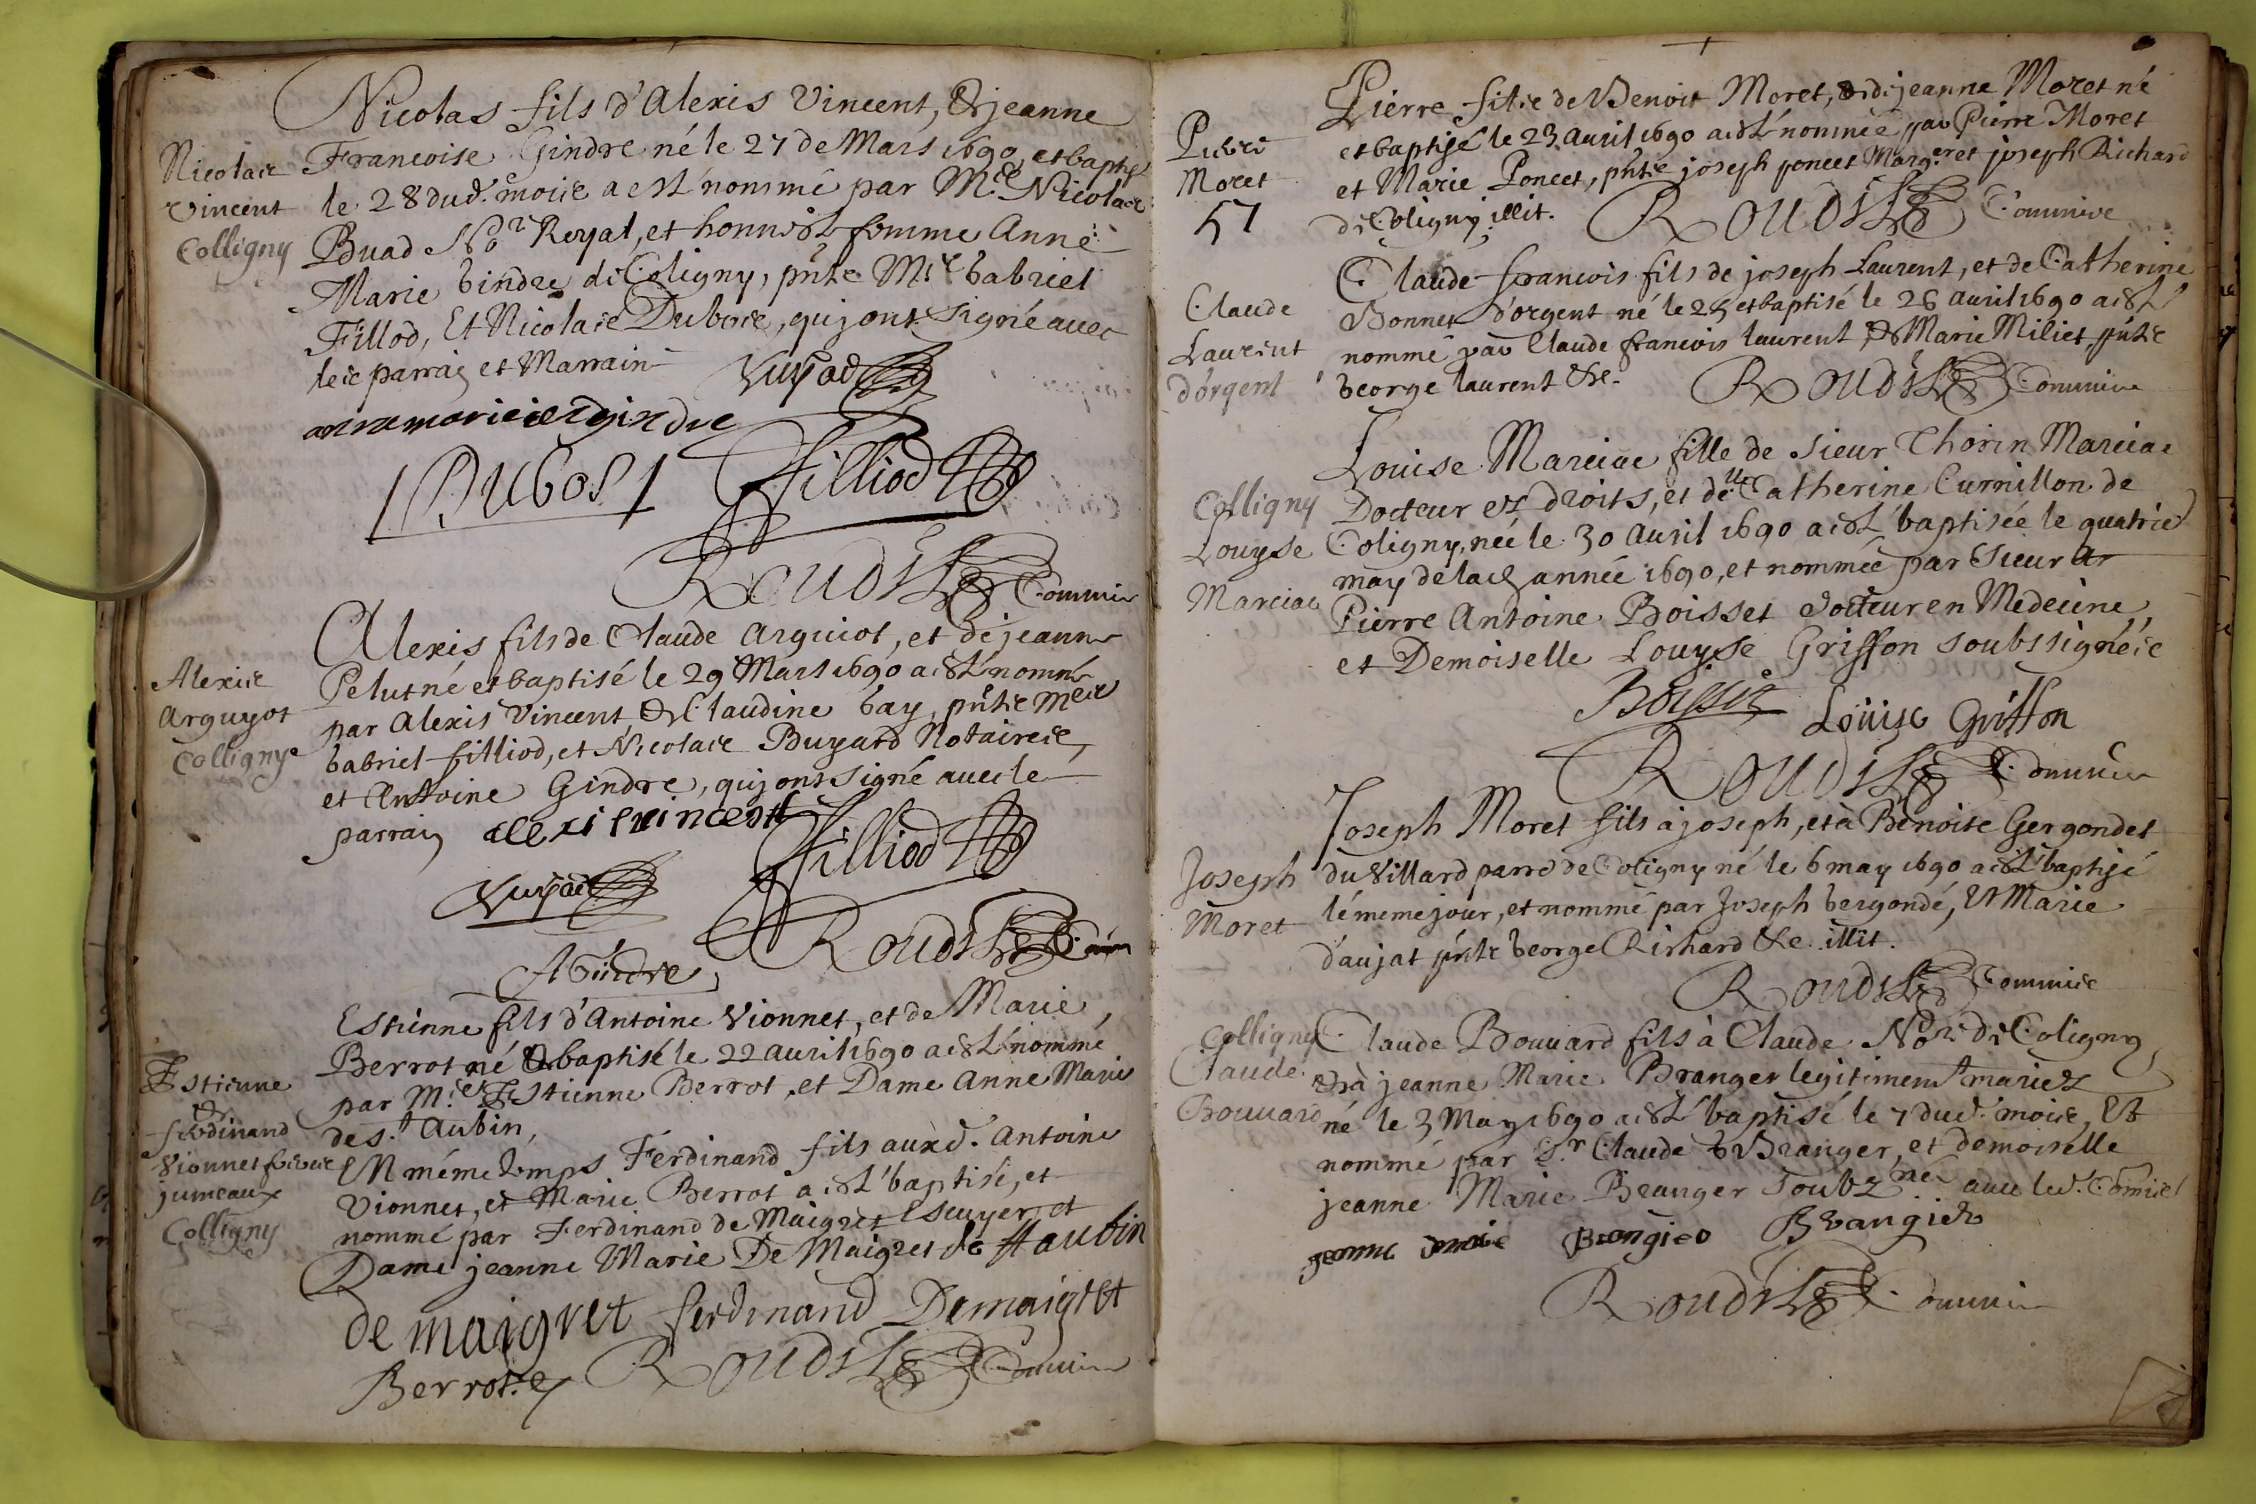 Nicolas fils d'Alexis Vincent, & jeanne
Nicolas
Vincent
Colligny
Francoise Gindre né le 27 de Mars 1690 et baptisé
le 28 dud. mois a esté nommé par Mre Nicolas
Buad Nore Royal, et honneste femme Anne
Marie Gindre de Coligny, pnts Mre Gabriel
Fillod, Et Nicolas Dubois, qui ont signé avec
les parrain et Marraine
anne marie gindre
Dubost Filliod
Roudil Commis
Alexis
Arguyot
Colligny
Alexis fils de Claude Arguiot, et de jeanne
Pelut né et baptisé le 29 Mars 1690 a esté nommé
par Alexis Vincent, & Claudine Gay, pnts Mes
Gabriel filliod, et Nicolas Buyard Notaires,
et Antoine Gindre, qui ont signé avec le
parrain alexi vincent
Filliod
AGindre
Roudil Com
Estienne
&
ferdinand
Vionnet freres
jumeaux
Colligny
Estienne fils d'Antoine Vionnet, et de Marie
Berrot né & baptisé le 22 avril 1690 a esté nommé
par Mre Estienne Berrot, et Dame Anne Marie
de St Aubin,
En méme temps Ferdinand fils auxd. Antoine
Vionnet, et Marie Berrot a esté baptisé, et
nommé par Ferdinand de Maigret Escuyer, et
Dame jeanne Marie De Maigret de St aubin
de maigret ferdinand Demaigret
Berrot
Roudil Commis
Pierre
Moret
57
Pierre fils de Benoit Moret, & de jeanne Moret né
et baptisé le 23 avril 1690 a esté nommé par Pierre Moret
et Marie Poncet, pnts joseph poncet Marg.eret joseph Richard
de Coligny illit.
Roudil Commis
Claude
Laurent
d'orgent
Claude francois fils de joseph Laurent, et de Catherine
Bonnet d'orgent né le 25 et baptisé le 26 avril 1690 a esté
nommé par Claude francois laurent & Marie Miliet, pnts
George laurent &c.
Roudil Commis
Colligny
Louyse
Marciac
Louise Marciac fille de sieur Thorin Marciac
Docteur ez droits, et de lle Catherine Curnillon de
Coligny, née le 30 avril 1690 a esté baptisée le quatrie
may de lad. année 1690, et nommée par Sieur
Pierre Antoine Boisset docteur en Medecine,
et Demoiselle Louyse Griffon soubssignées
Boisset Louise Griffon
Roudil Commis
Joseph
Moret
Joseph Moret fils à joseph, et à Benoite Gergondet
du Villard parr. de Coligny né le 6 may 1690 a esté baptisé
le méme jour, et nommé par Joseph Gergondé, Et Marie
d'aujat pnts George Richard &c. illit.
Roudil Commis
Colligny
Claude
Bouvard
Claude Bouvard fils à Claude Nore de Coligny,
& à jeanne Marie Branger legitiment mariez
né le 3 May 1690 a esté baptisé le 7 dud. mois, Et
nommé par Sr Claude Branger, et demoiselle
jeanne Marie Branger soubz nez avec led. Comis
jeanne marie Brangier Brangier
Roudil Commis